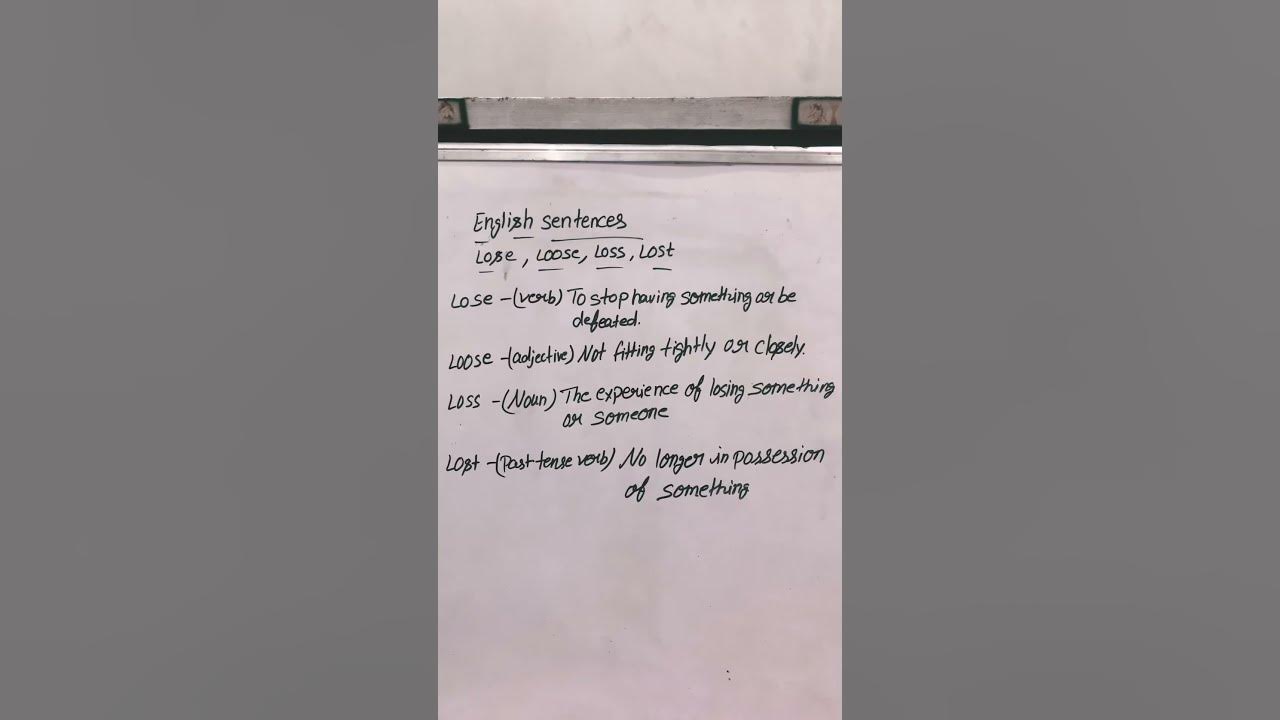 English sentences
Lose, Loose, Loss, Lost
Lose - (verb) To stop having something or be
defeated.
Loose - (adjective) Not fitting tightly or closely.
Loss - (Noun) The experience of losing something
or someone
Lost - (Past tense verb) No longer in possession
of something